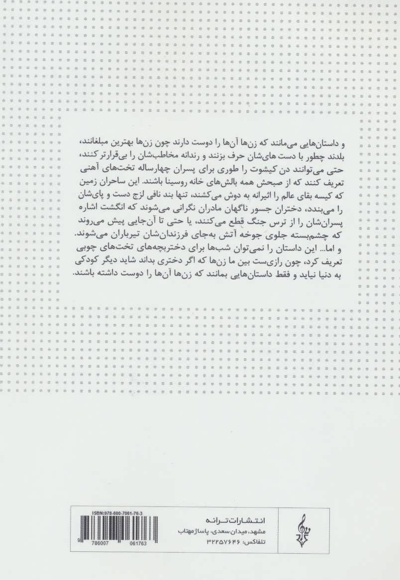 و داستان‌هایی می‌مانند که زن‌ها آن‌ها را دوست دارند چون زن‌ها بهترین مبلغانند،
بلدند چطور با دست های‌شان حرف بزنند و رندانه مخاطب‌شان را بی‌قرارتر کنند،
حتی می‌توانند دن کیشوت را طوری برای پسران چهارساله تخت‌های آهنی
تعریف کنند که از صبحش همه بالش‌های خانه روسینا باشند. این ساحران زمین
که کیسه بقای عالم را اثیرانه به دوش می‌کشند، تنها بند نافی لزج دست و پای‌شان
را می‌بندد، دختران جسور ناگهان مادران نگرانی می‌شوند که انگشت اشاره
پسران‌شان را از ترس جنگ قطع می‌کنند، یا حتی تا آن‌جایی پیش می‌روند
که چشم‌بسته جلوی جوخه آتش به‌جای فرزندان‌شان تیرباران می‌شوند.
و اما.. این داستان را نمی‌توان شب‌ها برای دختربچه‌های تخت‌های چوبی
تعریف کرد، چون رازی‌ست بین ما زن‌ها که اگر دختری بداند شاید دیگر کودکی
به دنیا نیاید و فقط داستان‌هایی بمانند که زن‌ها آن‌ها را دوست داشته باشند.
انتشارات ترانه
مشهد، میدان سعدی، پاساژ مهتاب
تلفاکس: ۳۲۲۵۷۶۴۶
ISBN: 978-600-7061-76-3
786007 061763